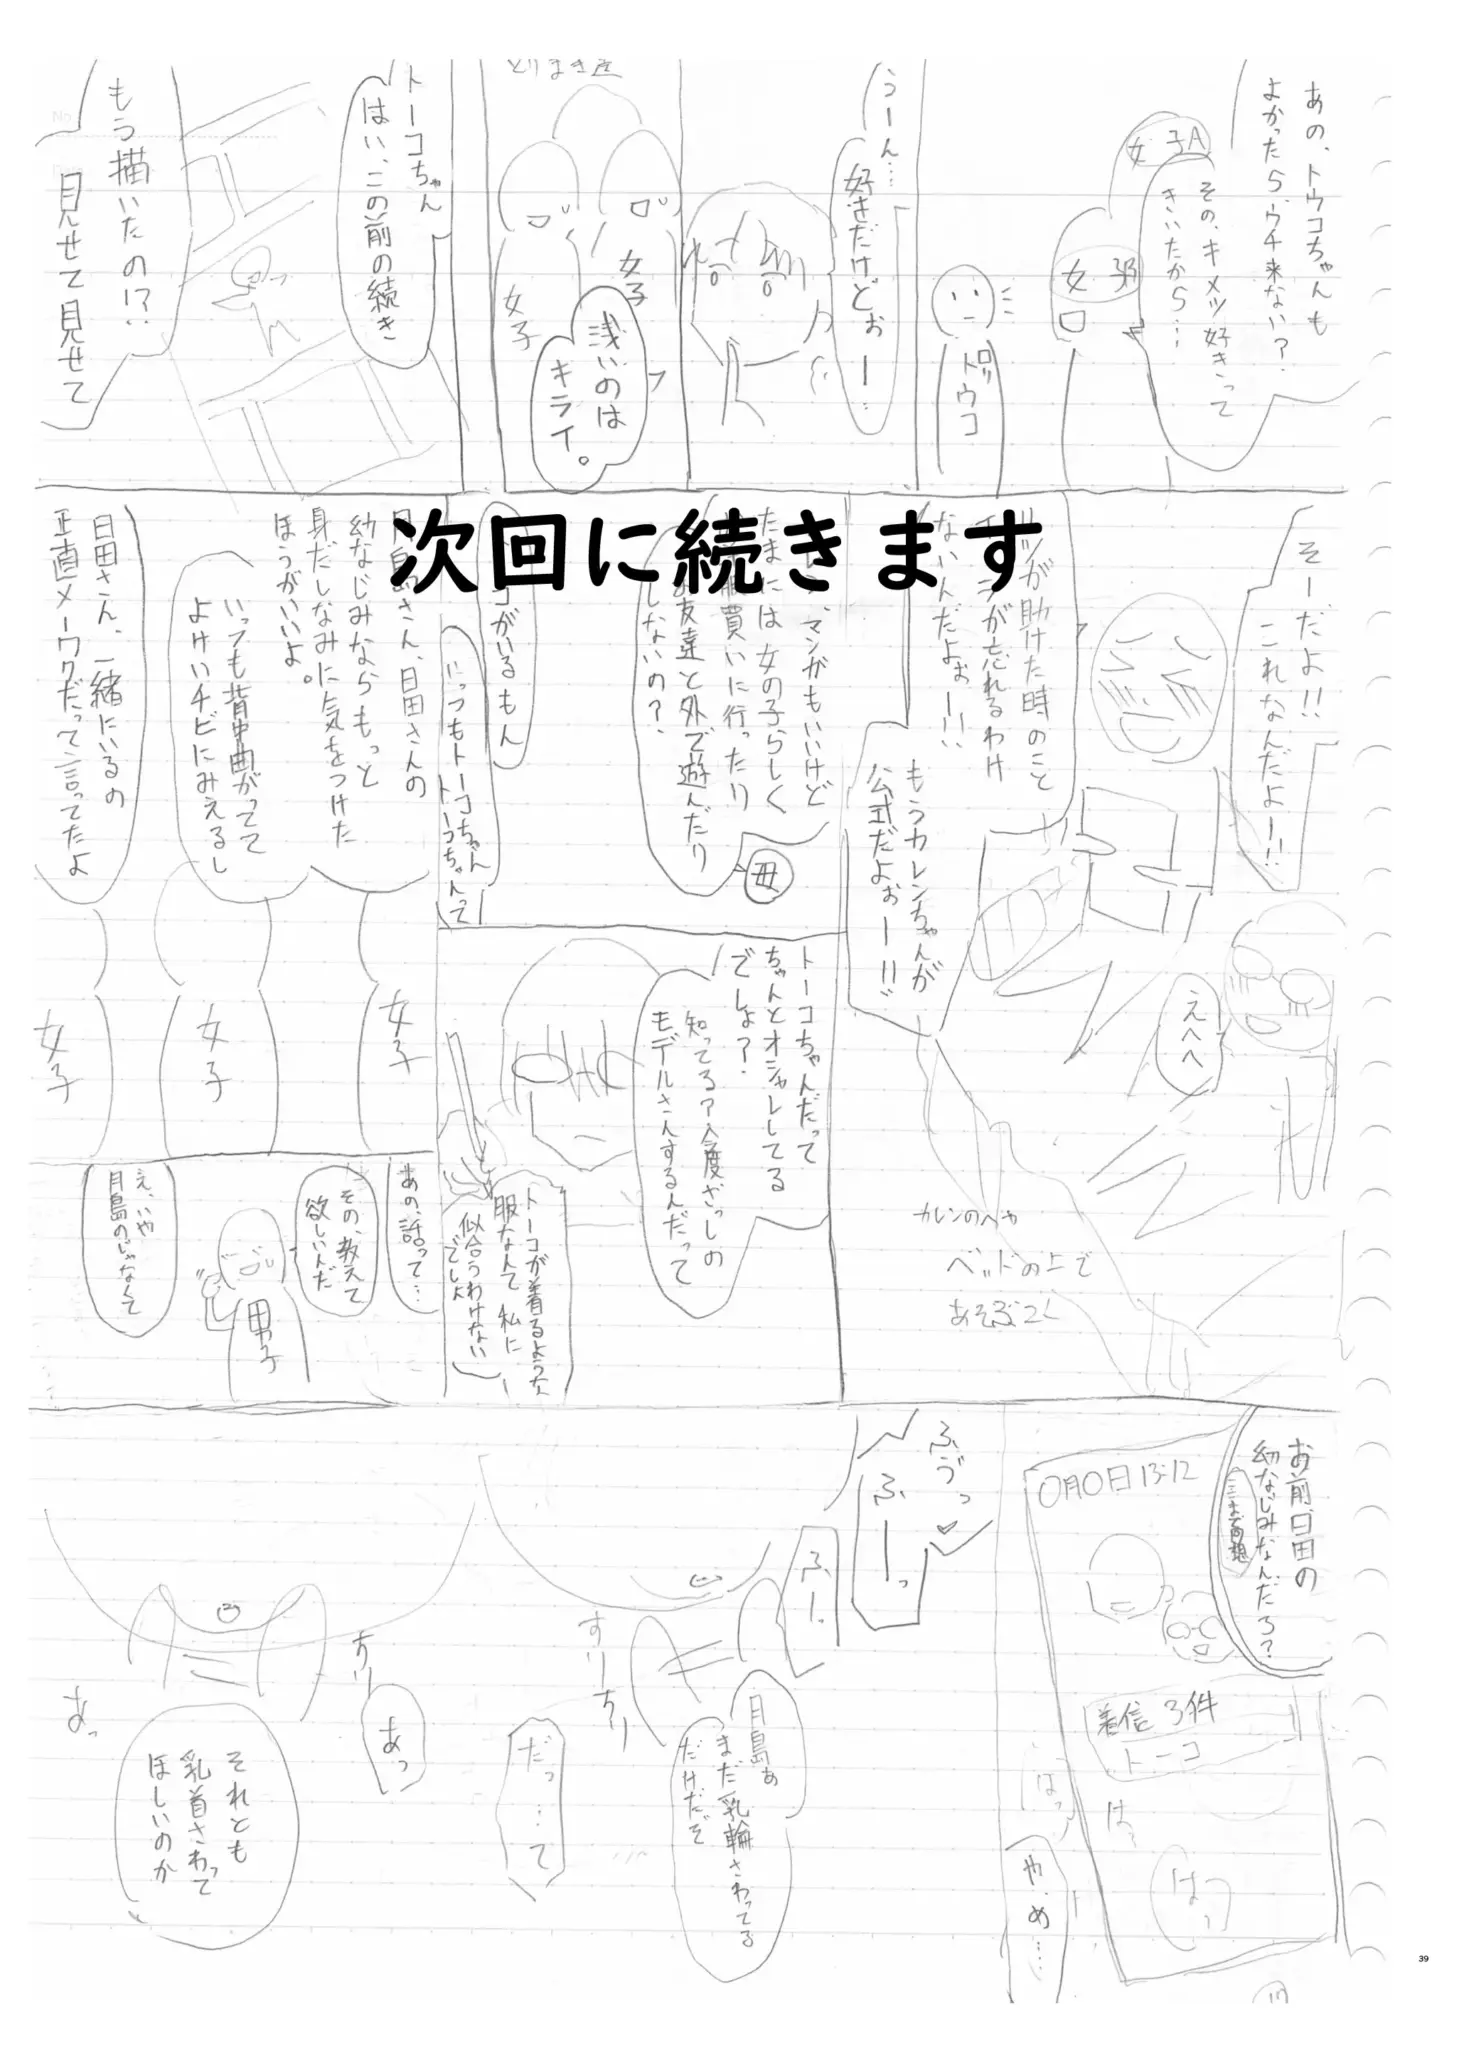 あの、トウコちゃんも
よかったら、ウチ来ない?
女子A
その、キメツ好きって
きいたから…
女子B
ロリ
トウコ
うーん……
好きだけどぉー…
とりまき達
女子
女子
浅いのは
キライ。
トーコちゃん
はい、この前の続き
もう描いたの!?
見せて見せて
次回に続きます
そーだよ!!
これなんだよー!!
が助けた時のこと
が忘れるわけ
ないんだよぉー!!
もうカレンちゃんが
公式だよぉー!!
えへへ
カレンのへや
ベッドの上で
あそぶ2人
マンガもいいけど
たまには女の子らしく
服買いに行ったり
お友達と外で遊んだり
しないの?
母
コがいるもん
いっつもトーコちゃん
トーコちゃんって
トーコちゃんだって
ちゃんとオシャレしてる
でしょ?
知ってる?今度ざっしの
モデルさんするんだって
トーコが着るような
服なんて 私に
似合うわけない
でしょ
月島さん、日田さんの
幼なじみならもっと
身だしなみに気をつけた
ほうがいいよ。
いっても背中曲がってて
よけいチビにみえるし
日田さん、一緒にいるの
正直メーワクだって言ってたよ
女子
女子
女子
あの、話って…
その、教えて
欲しいんだ
男子
え、いや
月島のじゃなくて
お前、日田の
幼なじみなんだろ?
ここまで回想
〇月〇日 13:12
着信 3件
トーコ
はっ
はっ
はっ
や、め……
ふゔっ♡
ふーっ
ふーっ
月島ぁ
まだ乳輪さわってる
だけだぞ
すりすり
だっ…て
すり
あっ
それとも
乳首さわって
ほしいのか
あっ
17
39